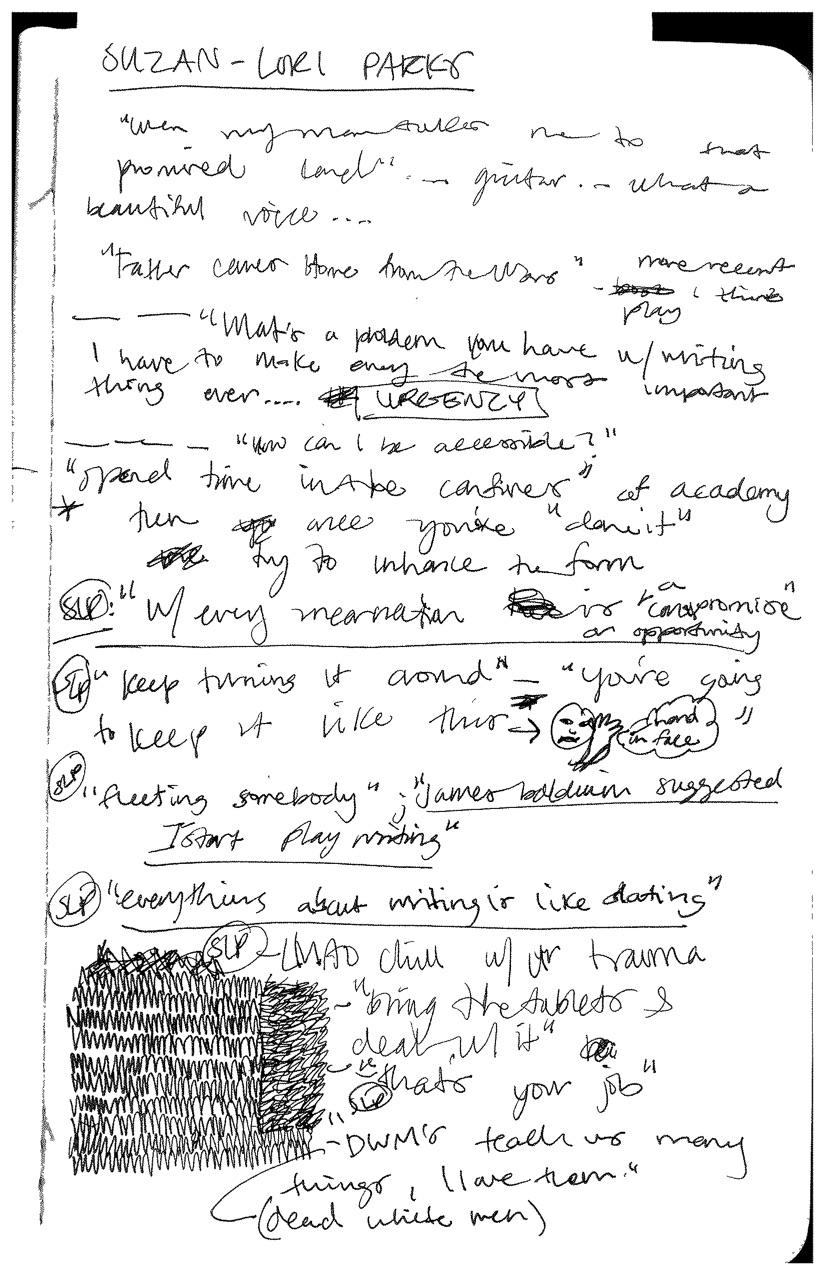 SUZAN-LORI PARKS
"when my man takes me to that
promised land" ... guitar ... what a
beautiful voice ...
"Father comes Home from the Wars" - more recent
play i think
— — "What's a problem you have w/ writing
I have to make every the most important
thing ever.... URGENCY
— — — "How can I be accessible?"
"spend time in the confines" of academy
* then once you've "done it"
try to inhance the form
SLP: "w/ every incarnation is "a compromise"
an opportunity
SLP "keep turning it around" — "you're going
to keep it like this → hand in face "
SLP "fleeting somebody" ; "James baldwin suggested
I start play writing"
SLP "everything about writing is like dating"
SLP - LMAO chill w/ ur trauma
- "bring the tablets &
deal w/ it"
- "that's your job"
SLP
- "DWM's teach us many
things, I love them."
(dead white men)